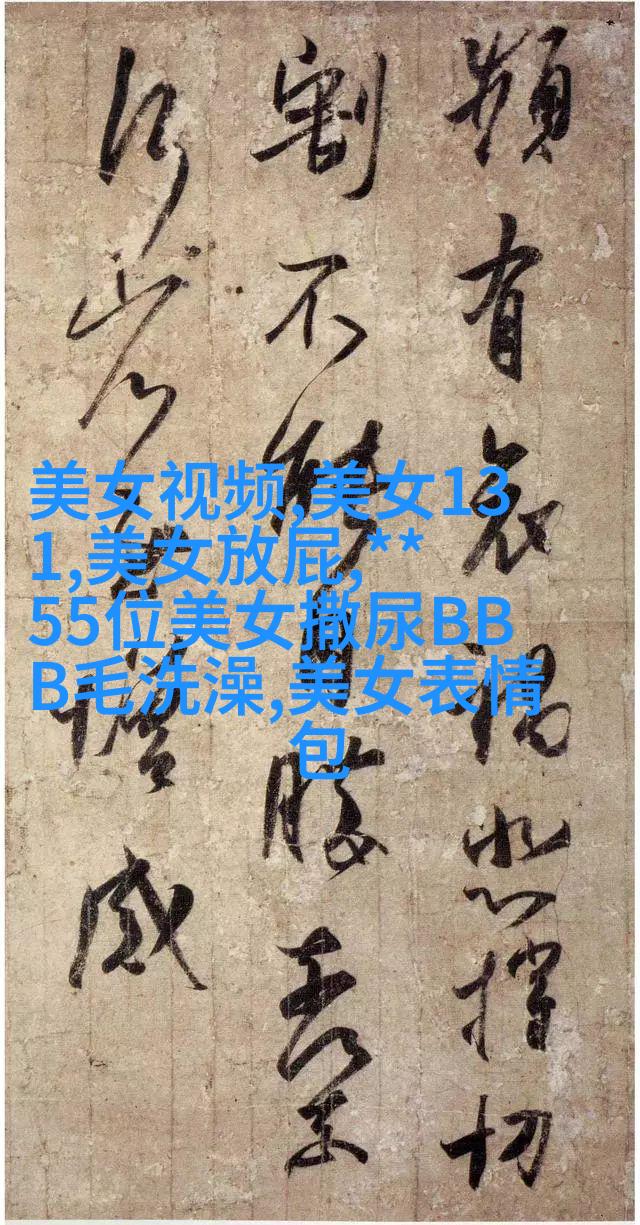 頻有哀禍悲摧切
割不能自勝奈何奈
何省慰增感
美女视频,美女13
1,美女放屁,**
55位美女撒尿BB
B毛洗澡,美女表情
包